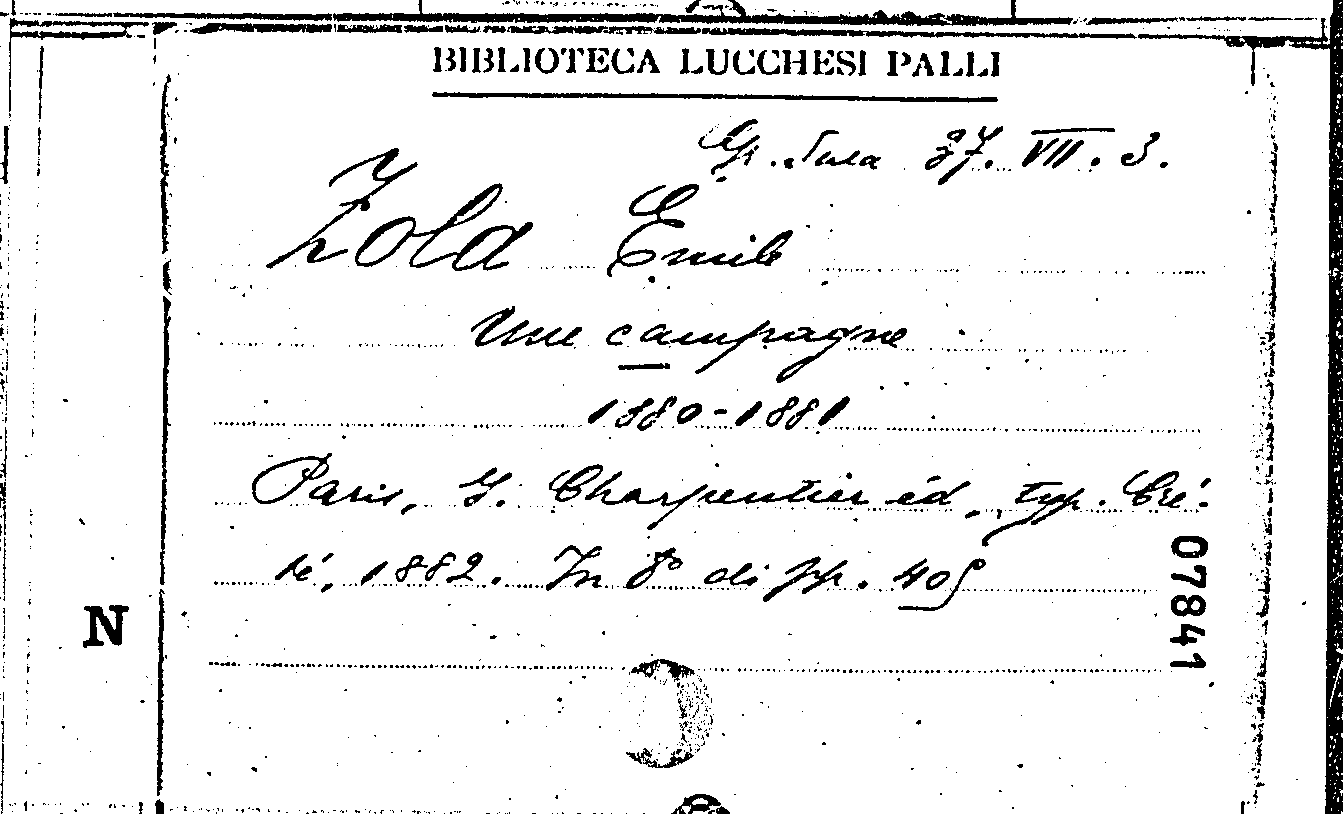 BIBLIOTECA LUCCHESI PALLI
Gr. Sala 37. VII. 3.
Zola Emile
Une campagne
1880-1881
Paris, G. Charpentier éd., typ. Cré-
té, 1882. In 8° di pp. 405
07841
N